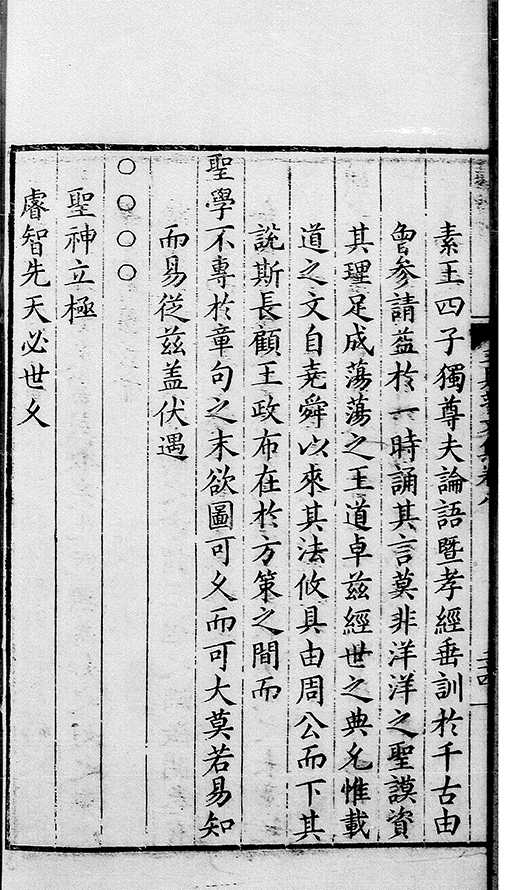 素王四子獨尊夫論語暨孝經垂訓於千古由
魯參請益於一時誦其言莫非洋洋之聖謨資
其理足成蕩蕩之王道卓茲經世之典允惟載
道之文自堯舜以來其法攸具由周公而下其
說斯長顧王政布在於方策之間而
聖學不專於章句之末欲圖可久而可大莫若易知
而易從茲盖伏遇
○○○○
聖神立極
睿智先天必世久